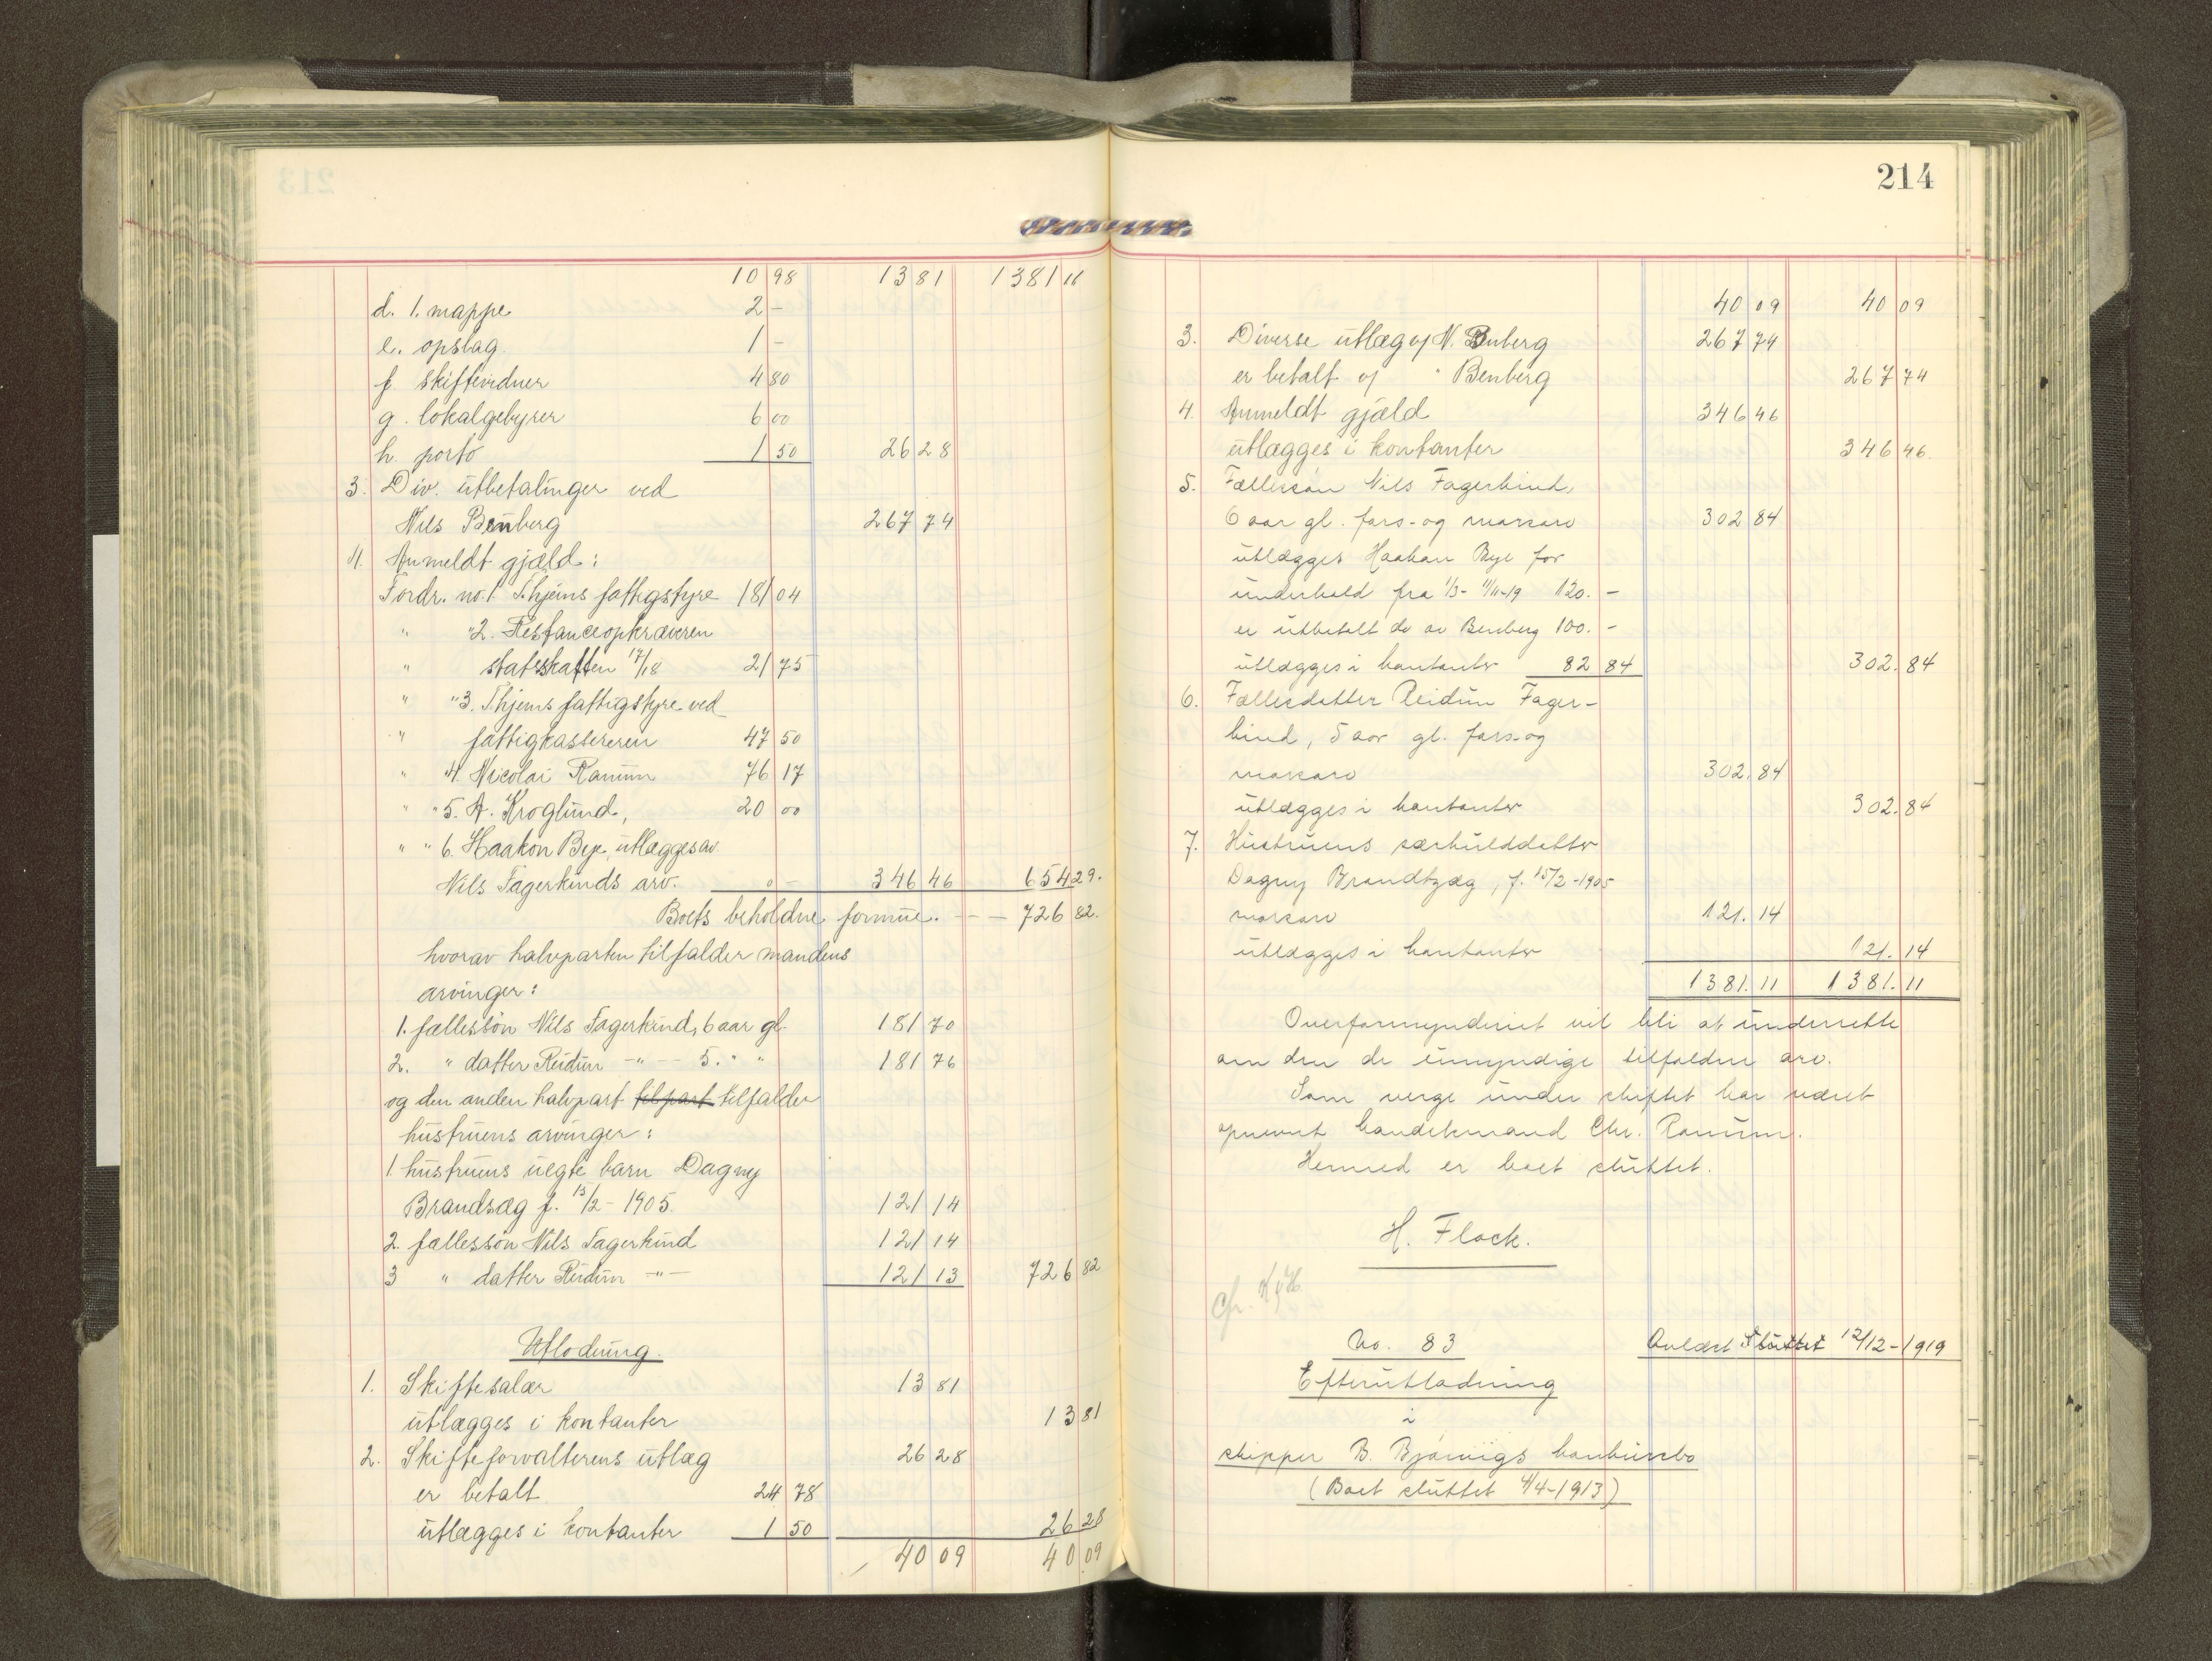 213
10 98 13 81 1381 11
d. 1. mappe 2 –
e. opslag 1 –
f. skiftevidner 4 80
g. lokalgebyrer 6 00
h. porto 1 50 26 28
3. Div. utbetalinger ved
Nils Benberg 267 74
4. Anmeldt gjæld:
Fordr. no. 1. T.hjems fattigstyre 181 04
" " 2. Restanceopkræveren
" statsskatten 17/18 21 75
" " 3. T.hjems fattigstyre ved
" fattigkassereren 47 50
" 4. Nicolai Ranum 76 17
" " 5. A. Kroglund, 20 00
" " 6. Haakon Bye, utlægges av
Nils Fagerkinds arv. 0 – 346 46 654 29.
Boets beholdne formue. – – 726 82.
hvorav halvparten tilfalder mandens
arvinger:
1. fællessön Nils Fagerkind, 6 aar gl. 181 70
2. " datter Reidun –"– 5. " " 181 76
og den anden halvpart tilpart tilfalder
hustruens arvinger:
1. hustruens uegte barn Dagny
Brandsæg f. 15/2 – 1905. 121 14
2. fællessön Nils Fagerkind 121 14
3 " datter Reidun –"– 121 13 726 82
Utlodning.
1. Skiftesalær 13 81
utlægges i kontanter 13 81
2. Skifteforvalterens utlæg 26 28
er betalt 24 78
utlægges i kontanter 1 50 26 28
40 09 40 09
214
40 09 40 09
3. Diverse utlæg v/ N. Benberg 267 74
er betalt v/ " Benberg 267 74
4. Anmeldt gjæld 346 46
utlægges i kontanter 346 46
5. Fællessön Nils Fagerkind,
6 aar gl. fars- og morsarv 302 84
utlægges Haakon Bye for
underhold fra 1/3 – 1/11-19 120. –
er utbetalt do av Benberg 100. –
utlægges i kontanter 82 84 302. 84
6. Fællesdatter Reidun Fager-
kind, 5 aar gl. fars- og
morsarv 302. 84
utlægges i kontanter 302. 84
7. Hustruens særkulddatter
Dagny Brandtzæg, f. 15/2 – 1905
morsarv 121. 14
utlægges i kontanter 121. 14
1381. 11 1381. 11
Overformynderiet vil bli at underrette
om den de umyndige tilfaldne arv.
Som verge under skiftet har været
opnevnt handelsmand Chr. Ranum.
Hermed er boet sluttet.
H. Flock.
cfr.
No. 83 Avlæst Sluttet 12/12 – 1919
Efterutlodning
i
skipper B. Bjørvigs konkursbo
(Boet sluttet 4/4 – 1913)